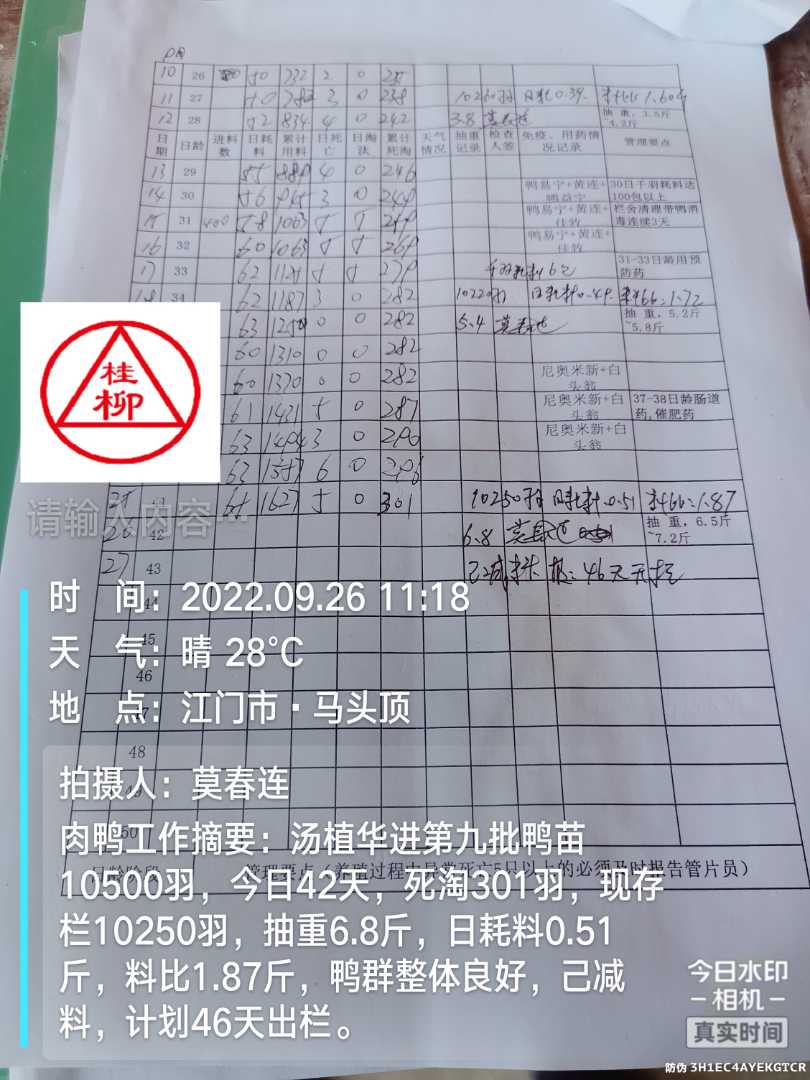 10 26 50 732 2 0
11 27 50 782 3 0 238 10260羽 日耗0.39. 料比1.60
12 28 52 834 4 0 242 3.8 莫春连 抽重，3.5斤
~4.2斤
日期 日龄 进料数 日耗料 累计用料 日死亡 日淘汰 累计死淘 天气情况 抽重记录 检查人签 免疫、用药情况记录 管理要点
13 29 55 889 4 0 246
14 30 56 945 3 0 249 鸭易宁+黄连+ 30日千羽耗料达
100包以上
15 31 400 58 1003 5 5 259 鸭易宁+黄连+ 栏舍清理带鸭消
毒连续3天
16 32 60 1063 5 5 269 鸭易宁+黄连+
17 33 62 1125 5 5 279 千羽耗料6包 31-33日龄用预
防药
18 34 62 1187 3 0 282 10220羽 日耗料0.49. 料比:1.72
63 1250 0 0 282 5.4 莫春连 抽重，5.2斤
~5.8斤
60 1310 0 0 282
60 1370 0 0 282 尼奥米新+白
头翁
61 1431 5 0 287 尼奥米新+白
头翁 37-38日龄肠道
药,催肥药
63 1494 3 0 290 尼奥米新+白
头翁
63 1557 6 0 296
25 65 1627 5 0 301 10250羽 日耗料0.51 料比:1.87
26 42 6.8 莫春连 抽重，6.5斤
~7.2斤
27 43 己减料 46天
44
45
46
47
48
50
日龄阶段 管理要点（养殖过程中异常死亡5只以上的必须及时报告管片员）
桂
柳
请输入内容…
时 间：2022.09.26 11:18
天 气：晴 28°C
地 点：江门市·马头顶
拍摄人：莫春连
肉鸭工作摘要：汤植华进第九批鸭苗
10500羽，今日42天，死淘301羽，现存
栏10250羽，抽重6.8斤，日耗料0.51
斤，料比1.87斤，鸭群整体良好，己减
料，计划46天出栏。
今日水印
相机
真实时间
防伪 3H1EC4AYEKGTCR